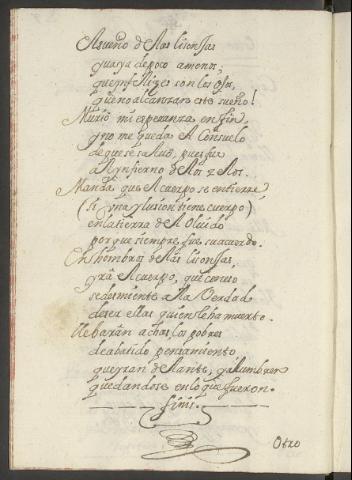 Al sueño de las lisonjas
guarda de poco amenos;
que ynfelizes son los ojos,
que no alcanzan este sueño!
Murio mi esperanza en fin
y no me queda el consuelo
de que se salve, pues fue
al ynfierno de los zelos.
Manda que el cuerpo se entierre
(si yna ylusion tiene cuerpo)
en la tierra de el oluido
porque siempre fue su acuerdo.
En hombros de las lisonjas,
yrà el cuerpo, que
se desmiente a la Verdad
de ser ellas quien le ha muerto.
llebaràn achas los pobres
de abatido pensamiento
que yràn delante, y alumbren
quedandose en lo que fueron.
finis.
Otro